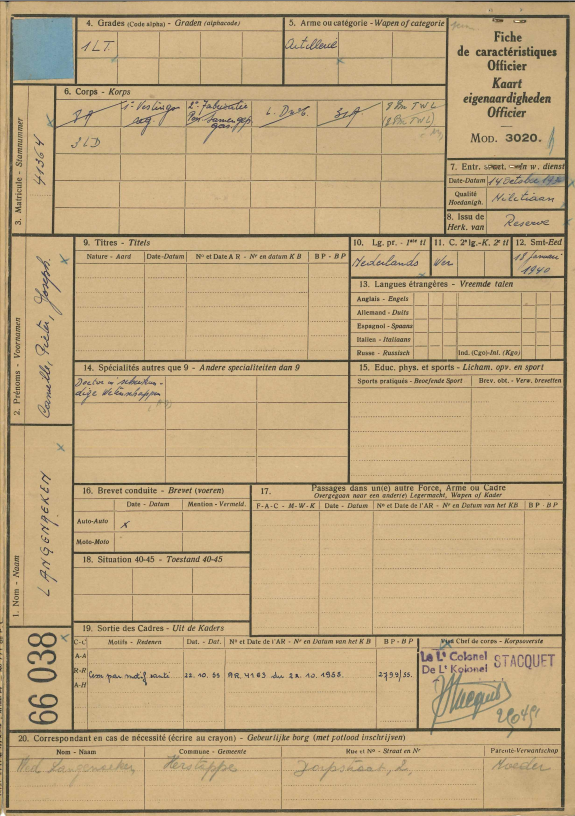 4. Grades (Code alpha) - Graden (alphacode)
1 LT.
5. Arme ou catégorie - Wapen of categorie
Artillerie
Fiche
de caractéristiques
Officier
Kaart
eigenaardigheden
Officier
Mod. 3020.
6. Corps - Korps
1e Vestings
2e Fabricatie
31A
3 LD
7. Entr. - In w. dienst
Date-Datum
14 October
Qualité
Hoedanigh.
Militiaan
8. Issu de
Herk. van
Reserve
3. Matricule - Stamnummer
41364
2. Prénoms - Voornamen
Camille, Pieter, Joseph.
1. Nom - Naam
LANGENAEKEN
66 038
9. Titres - Titels
Nature - Aard
Date-Datum
No et Date A R - Nr en datum K B
B P - B P
10. Lg. pr. - 1ste tl
Nederlands
11. C. 2e lg.-K. 2e tl
Wer
12. Smt-Eed
18 Januari
1940
13. Langues étrangères - Vreemde talen
Anglais - Engels
Allemand - Duits
Espagnol - Spaans
Italien - Italiaans
Russe - Russisch
Ind. (Cgo)-Inl. (Kgo)
14. Spécialités autres que 9 - Andere specialiteiten dan 9
Doctor in scheikun-
dige Wetenschappen
15. Educ. phys. et sports - Licham. opv. en sport
Sports pratiqués - Beoefende Sport
Brev. obt. - Verw. brevetten
16. Brevet conduite - Brevet (voeren)
Date - Datum
Mention - Vermeld.
Auto-Auto
x
Moto-Moto
17. Passages dans un(e) autre Force, Arme ou Cadre
Overgegaan naar een andere(e) Legermacht, Wapen of Kader
F - A - C - M - W - K
Date - Datum
No et Date de l'AR - Nr en Datum van het KB
B P - B P
18. Situation 40-45 - Toestand 40-45
19. Sortie des Cadres - Uit de Kaders
C-C
A-A
R-R
A-H
Motifs - Redenen
Dat. - Dat.
No et Date de l'AR - Nr en Datum van het K B
B P - B P
par motif santé
22. 10. 55
AR 4163 du 22. 10. 1955.
2799/55.
Vu: Chef de corps - Korpsoverste
Le Lt Colonel
De Lt Kolonel
STACQUET
20. Correspondant en cas de nécessité (écrire au crayon) - Gebeurlijke borg (met potlood inschrijven)
Nom - Naam
Commune - Gemeente
Rue et No - Straat en Nr
Parenté-Verwantschap
Wed Langenaeken
Herstappe
Dorpstraat, 2,
Moeder